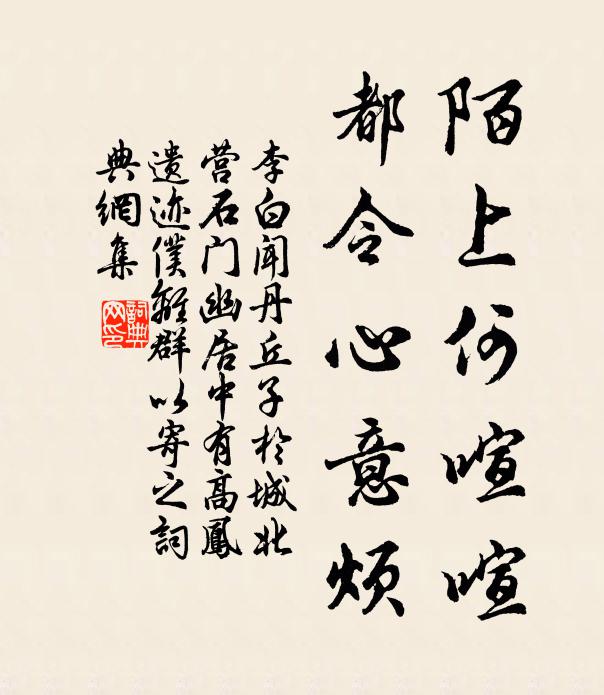 陌上何喧喧
都令心意烦
李白闻丹丘子於城北
营石门幽居中有高鳳
遗迹僕離群以寄之詞
典網集
詞典
网印